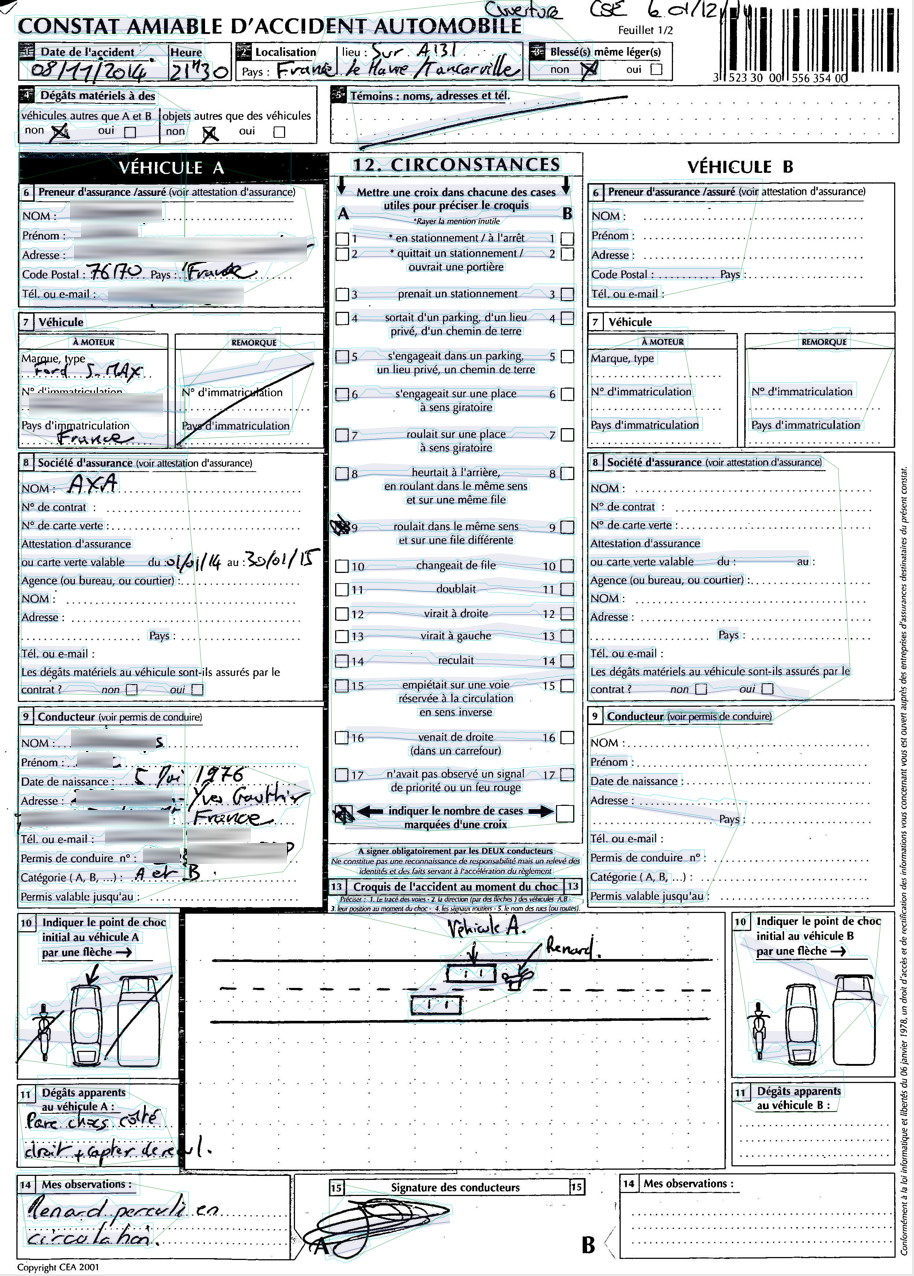 Ouverture CSE le 01/12/14
CONSTAT AMIABLE D'ACCIDENT AUTOMOBILE
Feuillet 1/2
1 Date de l'accident Heure
08/11/2014 21H30
2 Localisation lieu : Sur A131
Pays : France le Havre / Tancarville
3 Blessé(s) même léger(s)
non oui
3 523 30 00 556 354 00
4 Dégâts matériels à des
véhicules autres que A et B objets autres que des véhicules
non oui non oui
5 Témoins : noms, adresses et tél.
VÉHICULE A
6 Preneur d'assurance /assuré (voir attestation d'assurance)
NOM :
Prénom :
Adresse :
Code Postal : 76170 Pays : France
Tél. ou e-mail :
7 Véhicule
À MOTEUR REMORQUE
Marque, type
Ford S.MAX
N° d'immatriculation N° d'immatriculation
Pays d'immatriculation Pays d'immatriculation
France
8 Société d'assurance (voir attestation d'assurance)
NOM : AXA
N° de contrat :
N° de carte verte :
Attestation d'assurance
ou carte verte valable du : 01/01/14 au : 30/01/15
Agence (ou bureau, ou courtier) :
NOM :
Adresse :
Pays :
Tél. ou e-mail :
Les dégâts matériels au véhicule sont-ils assurés par le
contrat ? non oui
9 Conducteur (voir permis de conduire)
NOM : s
Prénom :
Date de naissance : 5 1976
Adresse : Yves Gauthier
France
Tél. ou e-mail :
Permis de conduire n° :
Catégorie ( A, B, ...) : A et B.
Permis valable jusqu'au :
12. CIRCONSTANCES
Mettre une croix dans chacune des cases
utiles pour préciser le croquis
A B
*Rayer la mention inutile
1 * en stationnement / à l'arrêt 1
2 * quittait un stationnement / 2
ouvrait une portière
3 prenait un stationnement 3
4 sortait d'un parking, d'un lieu 4
privé, d'un chemin de terre
5 s'engageait dans un parking, 5
un lieu privé, un chemin de terre
6 s'engageait sur une place 6
à sens giratoire
7 roulait sur une place 7
à sens giratoire
8 heurtait à l'arrière, 8
en roulant dans le même sens
et sur une même file
9 roulait dans le même sens 9
et sur une file différente
10 changeait de file 10
11 doublait 11
12 virait à droite 12
13 virait à gauche 13
14 reculait 14
15 empiétait sur une voie 15
réservée à la circulation
en sens inverse
16 venait de droite 16
(dans un carrefour)
17 n'avait pas observé un signal 17
de priorité ou un feu rouge
indiquer le nombre de cases
marquées d'une croix
A signer obligatoirement par les DEUX conducteurs
Ne constitue pas une reconnaissance de responsabilité mais un relevé des
identités et des faits servant à l'accélération du règlement
13 Croquis de l'accident au moment du choc 13
Préciser : 1. Le tracé des voies - 2. la direction (par des flèches) des véhicules A,B -
3. leur position au moment du choc - 4. les signaux routiers - 5. le nom des rues (ou routes).
VÉHICULE B
6 Preneur d'assurance /assuré (voir attestation d'assurance)
NOM :
Prénom :
Adresse :
Code Postal : Pays :
Tél. ou e-mail :
7 Véhicule
À MOTEUR REMORQUE
Marque, type
N° d'immatriculation N° d'immatriculation
Pays d'immatriculation Pays d'immatriculation
8 Société d'assurance (voir attestation d'assurance)
NOM :
N° de contrat :
N° de carte verte :
Attestation d'assurance
ou carte verte valable du : au :
Agence (ou bureau, ou courtier) :
NOM :
Adresse :
Pays :
Tél. ou e-mail :
Les dégâts matériels au véhicule sont-ils assurés par le
contrat ? non oui
9 Conducteur (voir permis de conduire)
NOM :
Prénom :
Date de naissance :
Adresse :
Pays :
Tél. ou e-mail :
Permis de conduire n° :
Catégorie ( A, B, ...) :
Permis valable jusqu'au :
10 Indiquer le point de choc
initial au véhicule A
par une flèche
Véhicule A.
Renard.
10 Indiquer le point de choc
initial au véhicule B
par une flèche
11 Dégâts apparents
au véhicule A :
Pare chocs côté
droit + capter de recul.
11 Dégâts apparents
au véhicule B :
14 Mes observations :
Renard percuté en
circulation.
15 Signature des conducteurs 15
A B
14 Mes observations :
Copyright CEA 2001
Conformément à la loi informatique et libertés du 06 janvier 1978, un droit d'accès et de rectification des informations vous concernant vous est ouvert auprès des entreprises d'assurances destinataires du présent constat.